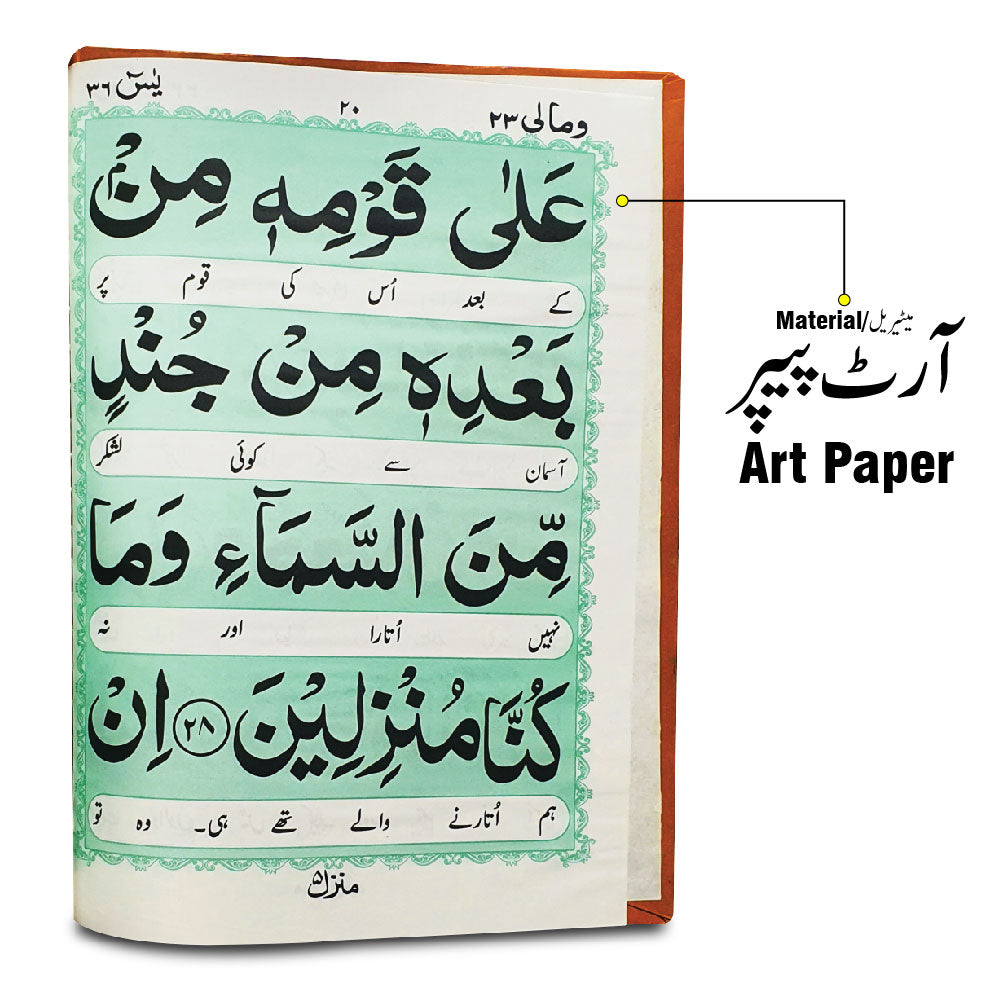 ومالی ۲۳ ۲۰ یٰسٓ ۳۶
عَلٰى قَوْمِهٖ مِنْۢ
کے بعد اُس کی قوم پر
بَعْدِهٖ مِنْ جُنْدٍ
آسمان سے کوئی لشکر
مِّنَ السَّمَآءِ وَمَا
نہیں اُتارا اور نہ
كُنَّا مُنْزِلِيْنَ ۲۸ اِنْ
ہم اُتارنے والے تھے ہی۔ وہ تو
منزل ۵
Material/میٹیریل
آرٹ پیپر
Art Paper